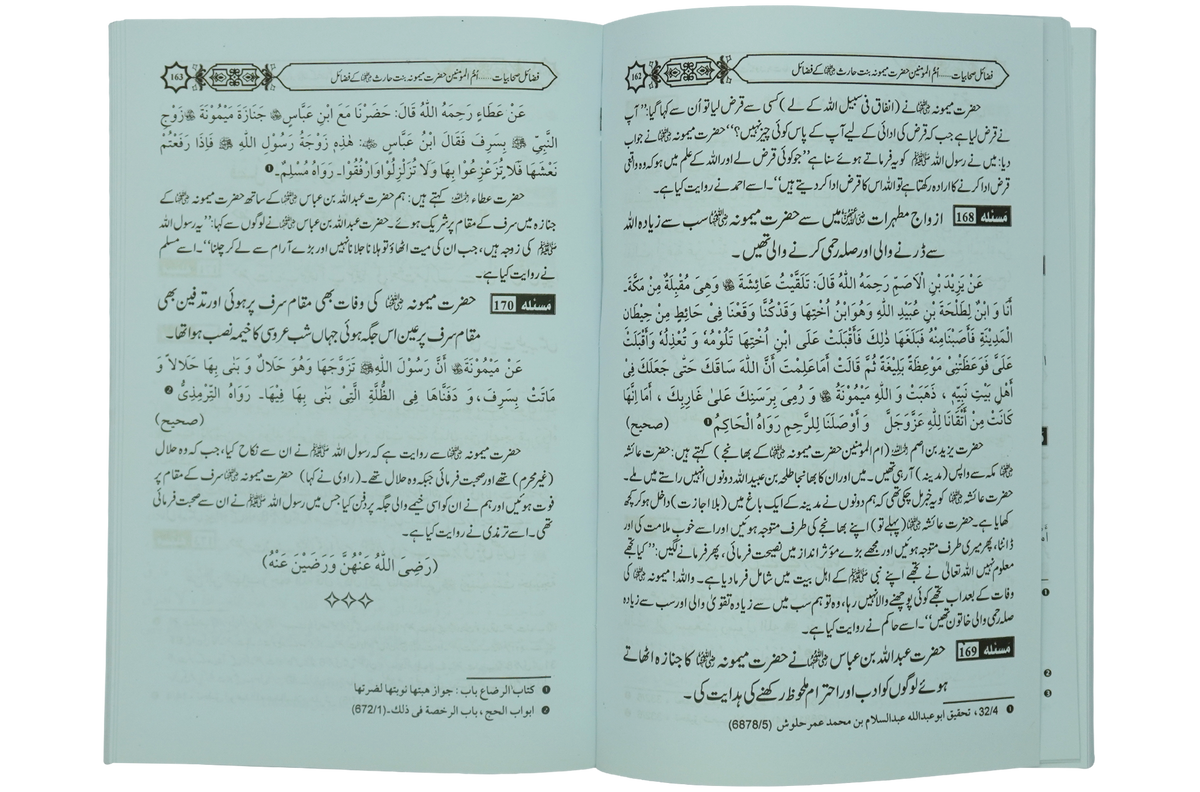 فضائل صحابیات ...... اُمّ المؤمنین حضرت میمونہ بنت حارث رضی اللہ عنہا کے فضائل
162
حضرت میمونہ رضی اللہ عنہا نے (انفاق فی سبیل اللہ کے لے) کسی سے قرض لیا تو اُن سے کہا گیا: ’’آپ
نے قرض لیا ہے جب کہ قرض کی ادائی کے لیے آپ کے پاس کوئی چیز نہیں؟‘‘ حضرت میمونہ رضی اللہ عنہا نے جواب
دیا: میں نے رسول اللہ ﷺ کو یہ فرماتے ہوئے سنا ہے ’’جو کوئی قرض لے اور اللہ کے علم میں ہو کہ وہ واقعی
قرض ادا کرنے کا ارادہ رکھتا ہے تو اللہ اس کا قرض ادا کر دیتے ہیں‘‘۔ اسے احمد نے روایت کیا ہے۔
مسئلہ 168 ازواج مطہرات رضی اللہ عنہن میں سے حضرت میمونہ رضی اللہ عنہا سب سے زیادہ اللہ
سے ڈرنے والی اور صلہ رحمی کرنے والی تھیں۔
عَنْ يَزِيْدَ بْنِ الْاَصَمِّ رَحِمَهُ اللّٰهُ قَالَ: تَلَقَّيْتُ عَائِشَةَ رضی اللہ عنہا وَهِىَ مُقْبِلَةٌ مِنْ مَكَّةَ.
أَنَا وَ ابْنٌ لِطَلْحَةَ بْنِ عُبَيْدِ اللّٰهِ وَهُوَ ابْنُ اُخْتِهَا وَقَدْ كُنَّا وَقَعْنَا فِى حَائِطٍ مِنْ حِيْطَانِ
الْمَدِيْنَةِ فَأَصَبْنَا مِنْهُ فَبَلَغَهَا ذٰلِكَ فَأَقْبَلَتْ عَلَى ابْنِ اُخْتِهَا تَلُوْمُهٗ وَ تُعْذِلُهٗ وَأَقْبَلَتْ
عَلَىَّ فَوَعَظَتْنِى مَوْعِظَةً بَلِيْغَةً ثُمَّ قَالَتْ أَمَا عَلِمْتَ أَنَّ اللّٰهَ سَاقَكَ حَتّٰى جَعَلَكَ فِى
أَهْلِ بَيْتِ نَبِيِّهٖ ، ذَهَبَتْ وَ اللّٰهِ مَيْمُوْنَةُ رضی اللہ عنہا وَ رُمِىَ بِرَسَنِكَ عَلىٰ غَارِبِكَ ، أَمَا اِنَّهَا
كَانَتْ مِنْ أَتْقَانَا لِلّٰهِ عَزَّوَجَلَّ وَ أَوْصَلَنَا لِلرَّحِمِ رَوَاهُ الْحَاكِمُ ❶ (صحیح)
حضرت یزید بن اصم رحمہ اللہ (ام المؤمنین حضرت میمونہ رضی اللہ عنہا کے بھانجے) کہتے ہیں: حضرت عائشہ
رضی اللہ عنہا مکہ سے واپس (مدینہ) آ رہی تھیں۔ میں اور ان کا بھانجا طلحہ بن عبید اللہ دونوں انہیں راستے میں ملے۔
حضرت عائشہ رضی اللہ عنہا کو یہ خبر مل چکی تھی کہ ہم دونوں نے مدینہ کے ایک باغ میں (بلا اجازت) داخل ہو کر کچھ
کھایا ہے۔ حضرت عائشہ رضی اللہ عنہا (پہلے تو) اپنے بھانجے کی طرف متوجہ ہوئیں اور اسے خوب ملامت کی اور
ڈانٹا، پھر میری طرف متوجہ ہوئیں اور مجھے بڑے مؤثر انداز میں نصیحت فرمائی، پھر فرمانے لگیں: ’’کیا تجھے
معلوم نہیں اللہ تعالیٰ نے تجھے اپنے نبی ﷺ کے اہل بیت میں شامل فرما دیا ہے۔ واللہ! میمونہ رضی اللہ عنہا کی
وفات کے بعد اب تجھے کوئی پوچھنے والا نہیں رہا، وہ تو ہم سب میں سے زیادہ تقویٰ والی اور سب سے زیادہ
صلہ رحمی والی خاتون تھیں‘‘۔ اسے حاکم نے روایت کیا ہے۔
مسئلہ 169 حضرت عبداللہ بن عباس رضی اللہ عنہما نے حضرت میمونہ رضی اللہ عنہا کا جنازہ اٹھاتے
ہوئے لوگوں کو ادب اور احترام ملحوظ رکھنے کی ہدایت کی۔
❶ 32/4 ، تحقیق ابو عبدالله عبدالسلام بن محمد عمر حلوش (6878/5)
فضائل صحابیات ...... اُمّ المؤمنین حضرت میمونہ بنت حارث رضی اللہ عنہا کے فضائل
163
عَنْ عَطَاءٍ رَحِمَهُ اللّٰهُ قَالَ: حَضَرْنَا مَعَ ابْنِ عَبَّاسٍ رضی اللہ عنہما جَنَازَةَ مَيْمُوْنَةَ رضی اللہ عنہا زَوْجِ
النَّبِيِّ ﷺ بِسَرِفَ فَقَالَ ابْنُ عَبَّاسٍ رضی اللہ عنہما: هٰذِهٖ زَوْجَةُ رَسُوْلِ اللّٰهِ ﷺ فَاِذَا رَفَعْتُمْ
نَعْشَهَا فَلَا تُزَعْزِعُوْا بِهَا وَلَا تُزَلْزِلُوْا وَارْفُقُوْا۔ رَوَاهُ مُسْلِمٌ۔❶
حضرت عطاء رحمہ اللہ کہتے ہیں: ہم حضرت عبداللہ بن عباس کے ساتھ حضرت میمونہ رضی اللہ عنہا کے
جنازہ میں سرف کے مقام پر شریک ہوئے۔ حضرت عبداللہ بن عباس رضی اللہ عنہما نے لوگوں سے کہا: ’’یہ رسول اللہ
ﷺ کی زوجہ ہیں، جب ان کی میت اٹھاؤ تو ہلانا جلانا نہیں اور بڑے آرام سے لے کر چلنا‘‘۔ اسے مسلم
نے روایت کیا ہے۔
مسئلہ 170 حضرت میمونہ رضی اللہ عنہا کی وفات بھی مقام سرف پر ہوئی اور تدفین بھی
مقام سرف پر عین اس جگہ ہوئی جہاں شب عروسی کا خیمہ نصب ہوا تھا۔
عَنْ مَيْمُوْنَةَ رضی اللہ عنہا أَنَّ رَسُوْلَ اللّٰهِ ﷺ تَزَوَّجَهَا وَهُوَ حَلَالٌ وَ بَنٰى بِهَا حَلَالًا وَ
مَاتَتْ بِسَرِفَ، وَ دَفَنَّاهَا فِى الظُّلَّةِ الَّتِىْ بَنٰى بِهَا فِيْهَا۔ رَوَاهُ التِّرْمِذِىُّ ❷
(صحیح)
حضرت میمونہ رضی اللہ عنہا سے روایت ہے کہ رسول اللہ ﷺ نے ان سے نکاح کیا، جب کہ وہ حلال
(غیر محرم) تھے اور صحبت فرمائی جبکہ وہ حلال تھے۔ (راوی نے کہا) حضرت میمونہ رضی اللہ عنہا سرف کے مقام پر
فوت ہوئیں اور ہم نے ان کو اسی خیمے والی جگہ پر دفن کیا جس میں رسول اللہ ﷺ نے ان سے صحبت فرمائی
تھی۔ اسے ترمذی نے روایت کیا ہے۔
(رَضِىَ اللّٰهُ عَنْهُنَّ وَرَضِيْنَ عَنْهُ)
❶ کتاب الرضاع باب : جواز هبتها نوبتها لضرتها
❷ ابواب الحج ، باب الرخصة فى ذلك۔(672/1)